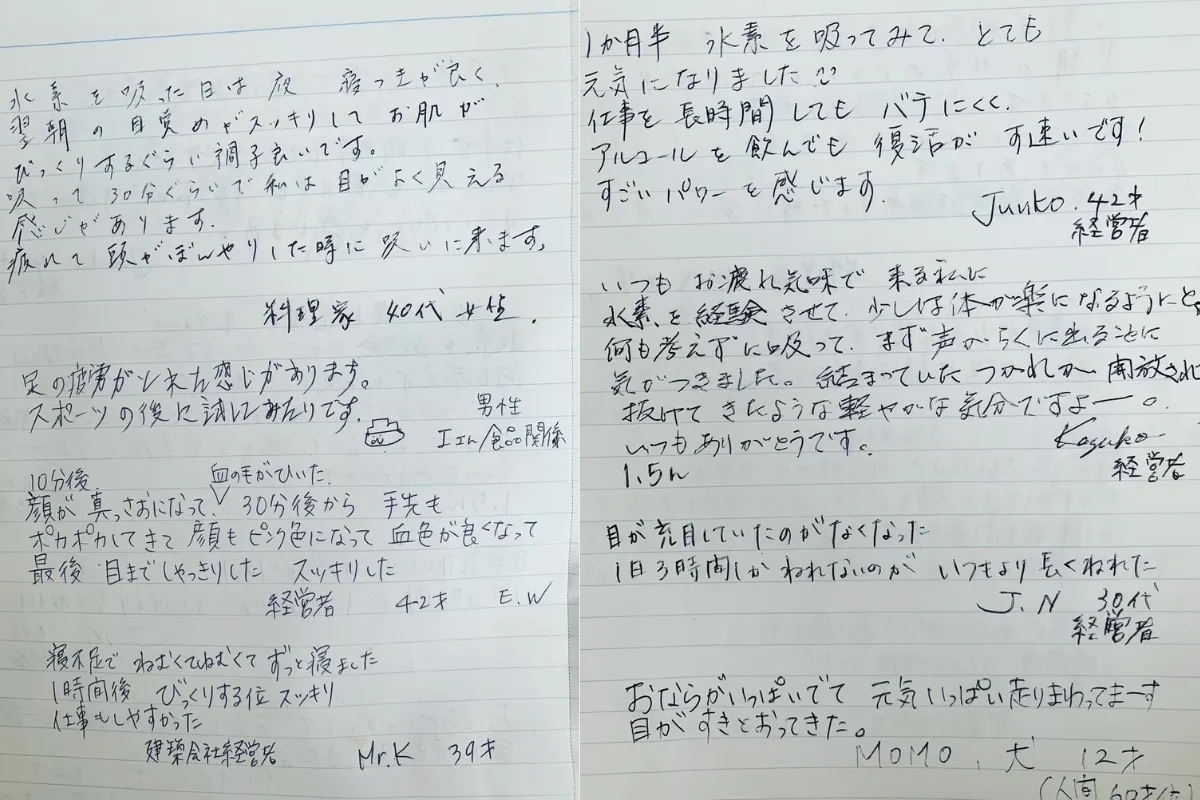 水素を吸った日は夜 寝つきが良く、
翌朝の目覚めがスッキリして お肌が
びっくりするぐらい調子良いです。
吸って30分ぐらいで私は目がよく見える
感じがあります。
疲れて頭がぼんやりした時に吸いに来ます。
料理家 40代 女性.
足の疲労がとれた感じがあります。
スポーツの後に試してみたいです。
男性
食品関係
10分後
血の気がひいた
顔が真っさおになって、30分後から 手先も
ポカポカしてきて 顔もピンク色になって 血色が良くなって
最後 目までしゃっきりした スッキリした
経営者 42才 E.W
寝不足で ねむくてねむくて ずっと寝ました
1時間後 びっくりする位 スッキリ
仕事もしやすかった
建築会社経営者 Mr.K 39才
1か月半 水素を吸ってみて、とても
元気になりました
仕事を長時間しても バテにくく、
アルコールを飲んでも 復活が す速いです!
すごいパワーを感じます.
Junko. 42才
経営者
いつも お疲れ気味で 来る私に
水素、を経験させて、少しは体が楽になるようにと、
何も考えずに吸って、まず声がらくに出ることに
気がつきました。結まっていた つかれが 開放され
抜けて きたような軽やかな気分ですよー。
いつもありがとうです。
Kazuko
経営者
1.5h
目が充目していたのがなくなった
1日3時間しか ねれないのが いつもより長くねれた
J.N 30代
経営者
おならがいっぱいでて 元気いっぱい走りまわってまーす
目がすきとおってきた。
MOMO. 犬 12才
(人間 60才位)